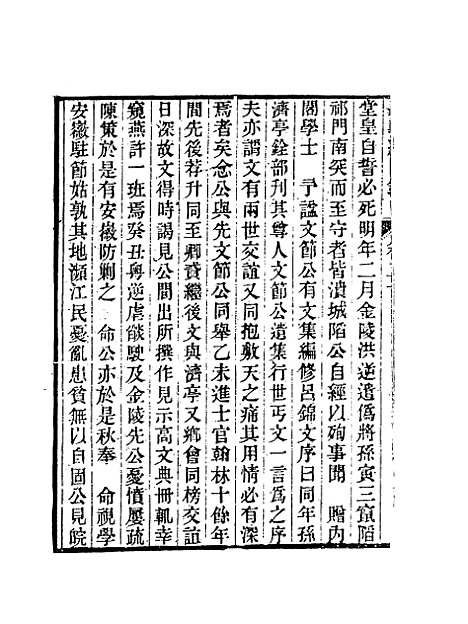 堂皇自誓必死明年二月金陵洪逆遣僞將孫寅三竄陷
祁門南突而至守者皆潰城陷公自經以殉事聞　贈內
閣學士　予諡文節公有文集編修呂錦文序曰同年孫
濟亭銓部刊其尊人文節公遺集行世丐文一言爲之序
夫亦謂文有兩世交誼又同抱敷天之痛其用情必有深
焉者矣念公與先文節公同舉乙未進士官翰林十餘年
間先後荐升同至卿貳繼後文與濟亭又鄉會同榜交誼
日深故文得時謁見公間出所撰作見示高文典冊輒幸
窺燕許一班焉癸丑粵逆虐燄駛及金陵先公憂憤屢疏
陳策於是有安徽防剿之　命公亦於是秋奉　命視學
安徽駐節姑孰其地瀕江民憂亂患貧無以自固公見皖